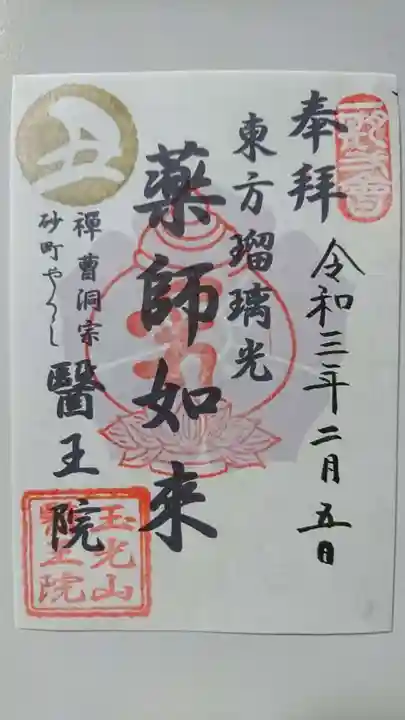 奉拝
令和三年二月五日
東方瑠璃光
薬師如来
禅曹洞宗
砂町やくし
醫王院
丑
玉光山
醫王院